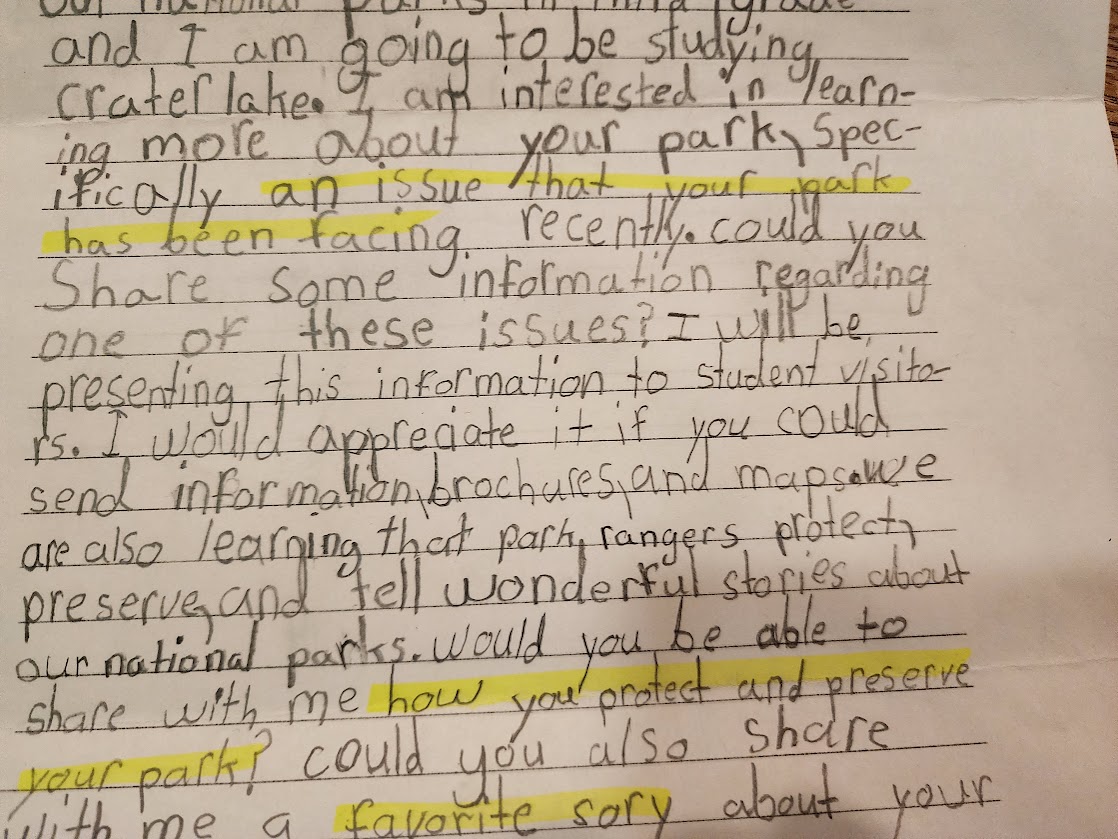 our national parks in third grade
and I am going to be studying
crater lake. I am interested in learn-
ing more about your park, Spec-
ifically an issue that your park
has been facing recently. could you
Share some information regarding
one of these issues? I will be
presenting this information to student visito-
rs. I would appreciate it if you could
send information, brochures, and maps. we
are also learning that park rangers protect,
preserve, and tell wonderful stories about
our national parks. would you be able to
share with me how you protect and preserve
your park? could you also share
with me a favorite sory about your